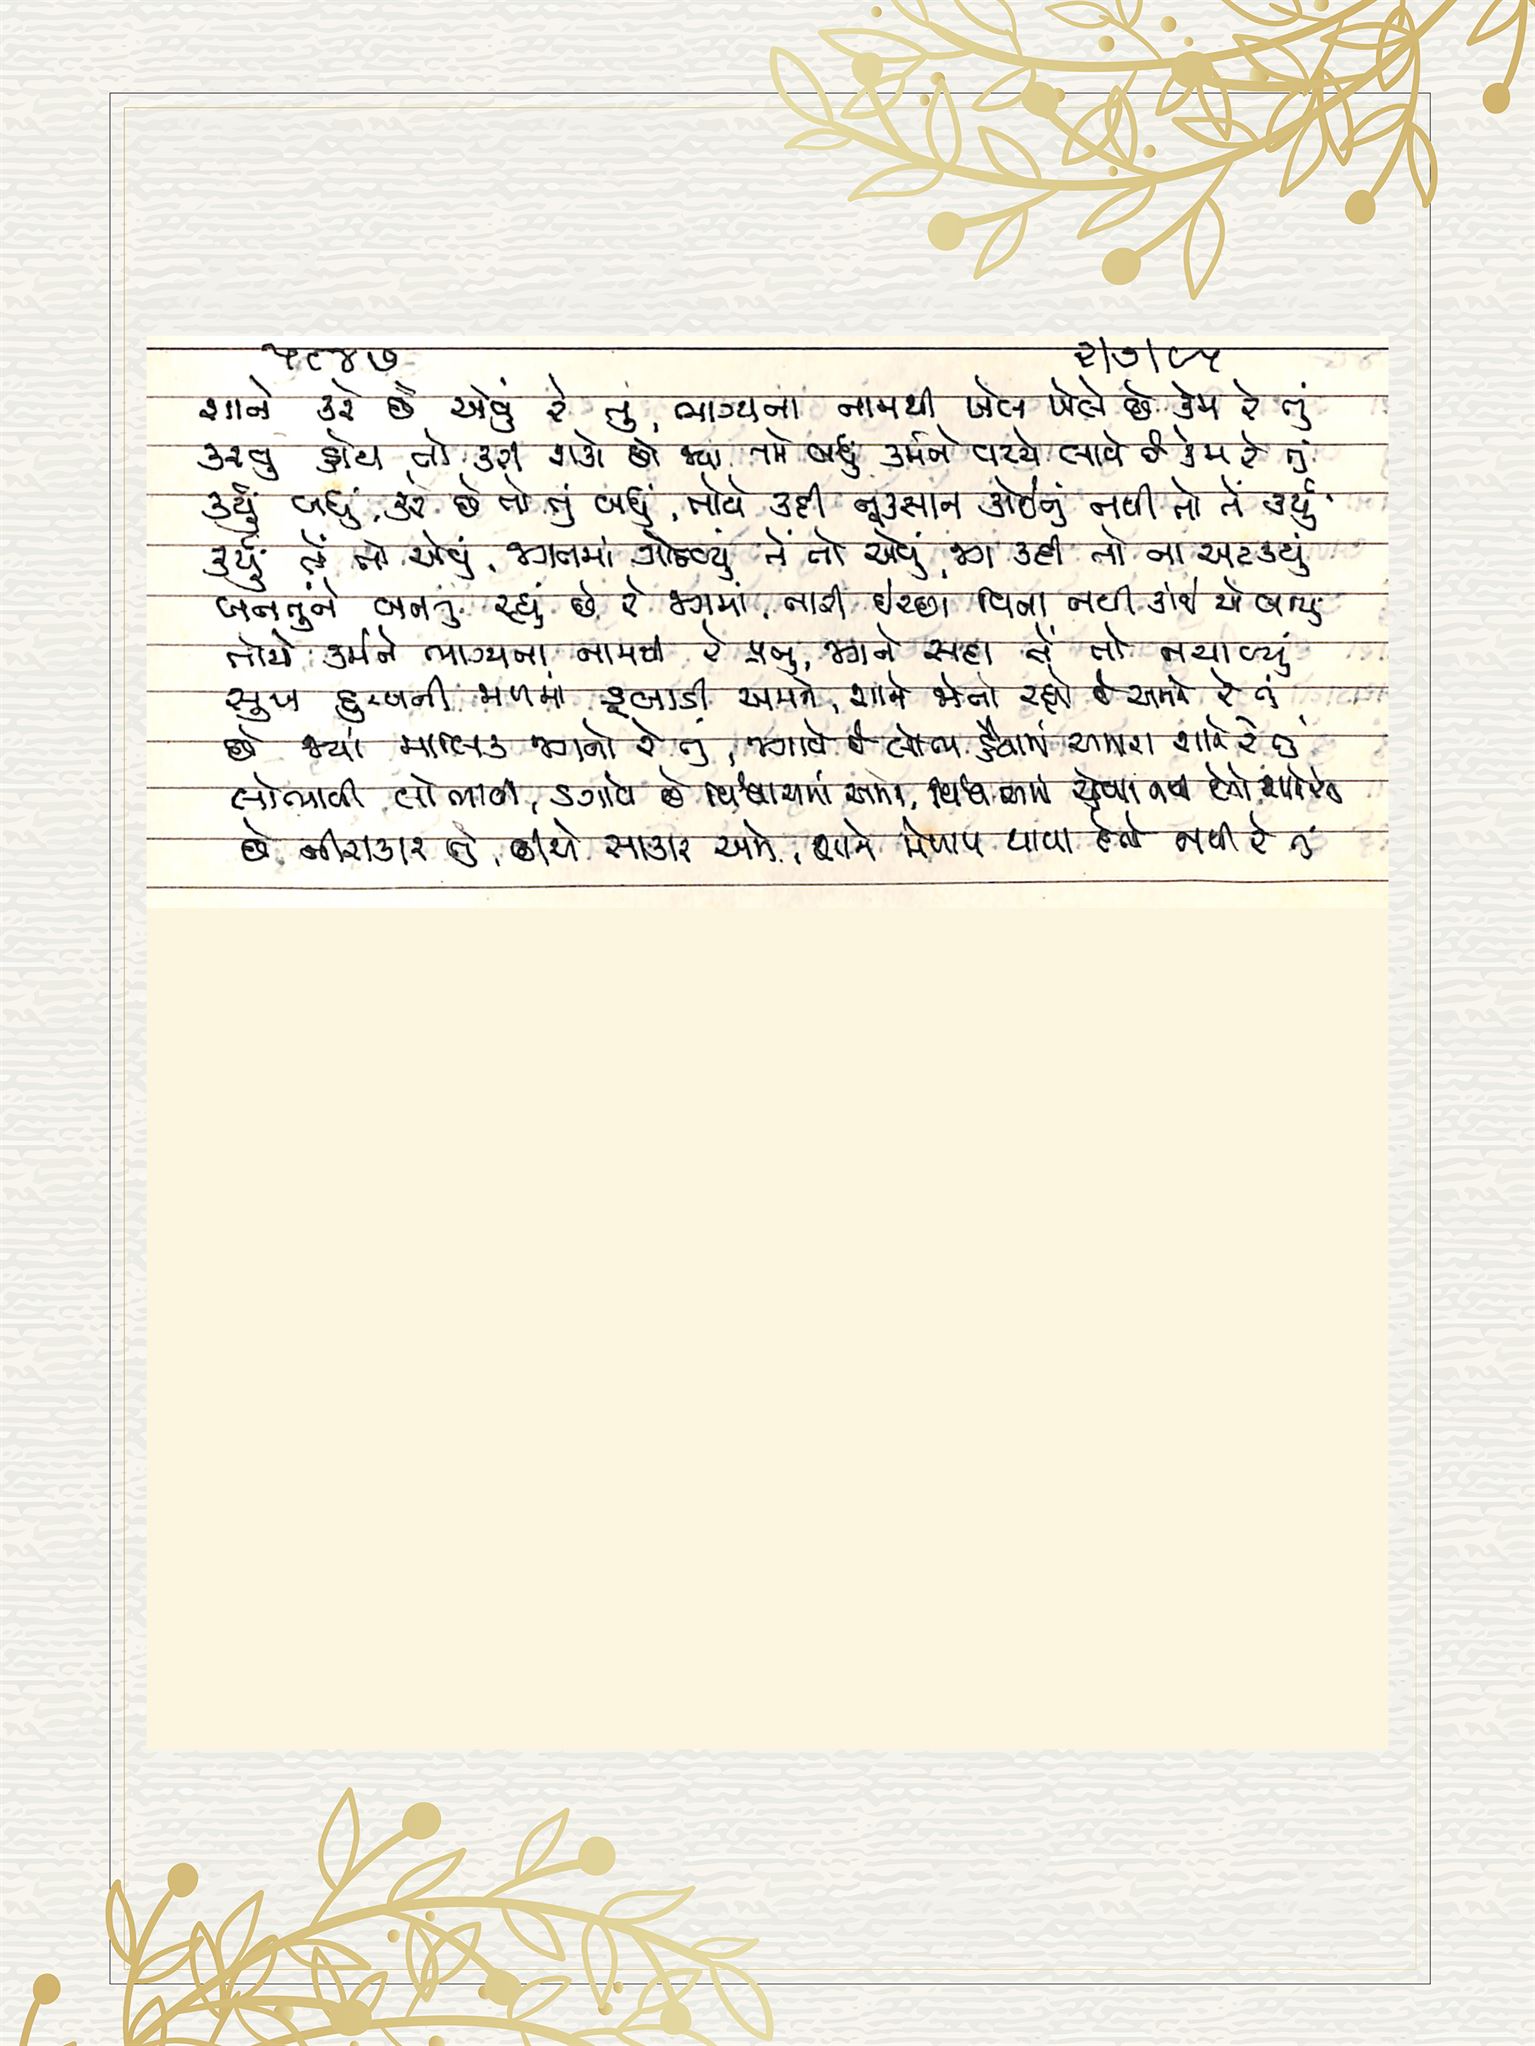 ૫૮૪૭ ૨/૭/૯૫
શાને કરે છે એવું રે તું, ભાગ્યના નામથી ખેલ ખેલે છે કેમ રે તું
કરવું હોય તો કરી શકો છો જ્યાં તમે બધું કર્મને વચ્ચે લાવે છે કેમ રે તું
કર્યું બધું, કરે છે તો તું બધું, તોયે કહી નુકસાન કોઈનું નથી તો તેં કર્યું
કર્યું તેં તો એવું, જગતમાં ગોઠવ્યું તેં તો એવું, જગ કહી તો ના અટક્યું
બનતુંને બનતું રહ્યું છે રે જગમાં, તારી ઇચ્છા વિના નથી કાંઈ એ બન્યું
તોયે કર્મને ભાગ્યના નામથી રે પ્રભુ, જગને સદા તેં તો નચાવ્યું
સુખ દુઃખની જાળમાં ડૂબાડી અમને, શાને જોતો રહ્યો છે અમને રે તું
છે જ્યાં માલિક જગનો રે તું, જગાવે છે લોભ હૈયામાં અમારા શાને રે તું
લોભાવી લોભાવી, ડગાવે છે વિશ્વાસમાં અમને, વિશ્વાસમાં રહેવા નથી દેતો શાને રે તું
છે નીરાકાર તું, છીએ સાકાર અમે, શાને મેળાપ થાવા દેતો નથી રે તું